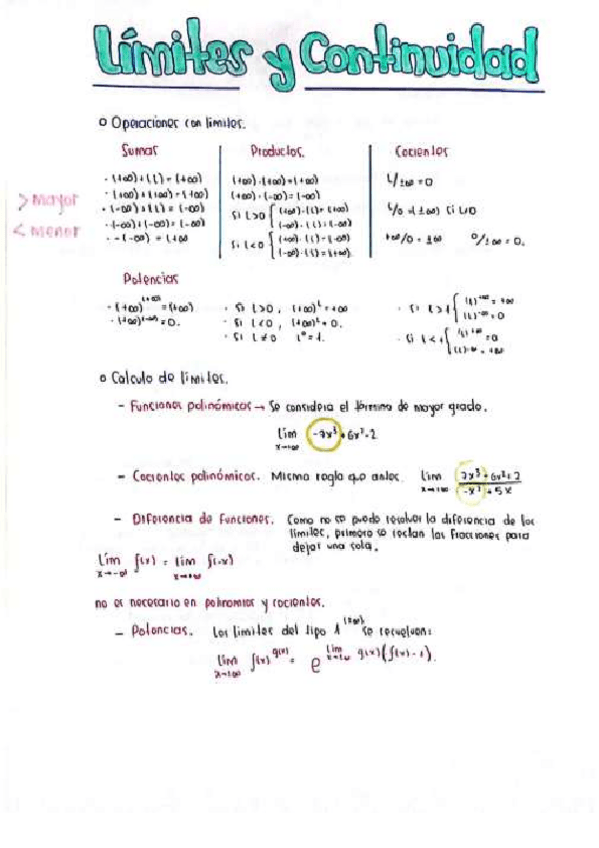 Límites y Continuidad
o Operaciones con límites.
Sumas Productos. Cocientes
· (+∞)+(L)=(+∞) (+∞)·(+∞)=(+∞) L/±∞=0
· (+∞)+(+∞)=(+∞) (+∞)·(-∞)=(-∞)
> Mayor
· (-∞)+(L)=(-∞) Si L>0 { (+∞)·(L)=(+∞) L/0=(±∞) si L≠0
· (-∞)+(-∞)=(-∞) (-∞)·(L)=(-∞)
< menor
· -(-∞)=(+∞ Si L<0 { (+∞)·(L)=(-∞) ±∞/0=±∞ 0/±∞=0.
(-∞)·(L)=(+∞)
Potencias
· (+∞)^(+∞)=(+∞) · Si L>0, (+∞)^L=+∞ · Si L>1 { (L)^+∞=+∞
· (+∞)^(-∞)=0. · Si L<0, (+∞)^L=0. (L)^-∞=0
· Si L≠0 L^0=1. · Si L<1 { (L)^+∞=0
(L)^-∞=+∞
o Calculo de límites.
- Funciones polinómicas → Se considera el término de mayor grado.
lim x→+∞ -7x³+6x²-2
- Cocientes polinómicos. Misma regla que antes. lim x→+∞
- Diferencia de Funciones. Como no se puede resolver la diferencia de los
límites, primero se restan las fracciones para
dejar una sola.
lim x→-∞ f(x) = lim x→+∞ f(-x)
no es necesario en polinomios y cocientes.
- Potencias. Los límites del tipo 1^(±∞) se resuelven:
lim x→+∞ f(x)^g(x) = e^lim g(x)(f(x)-1).